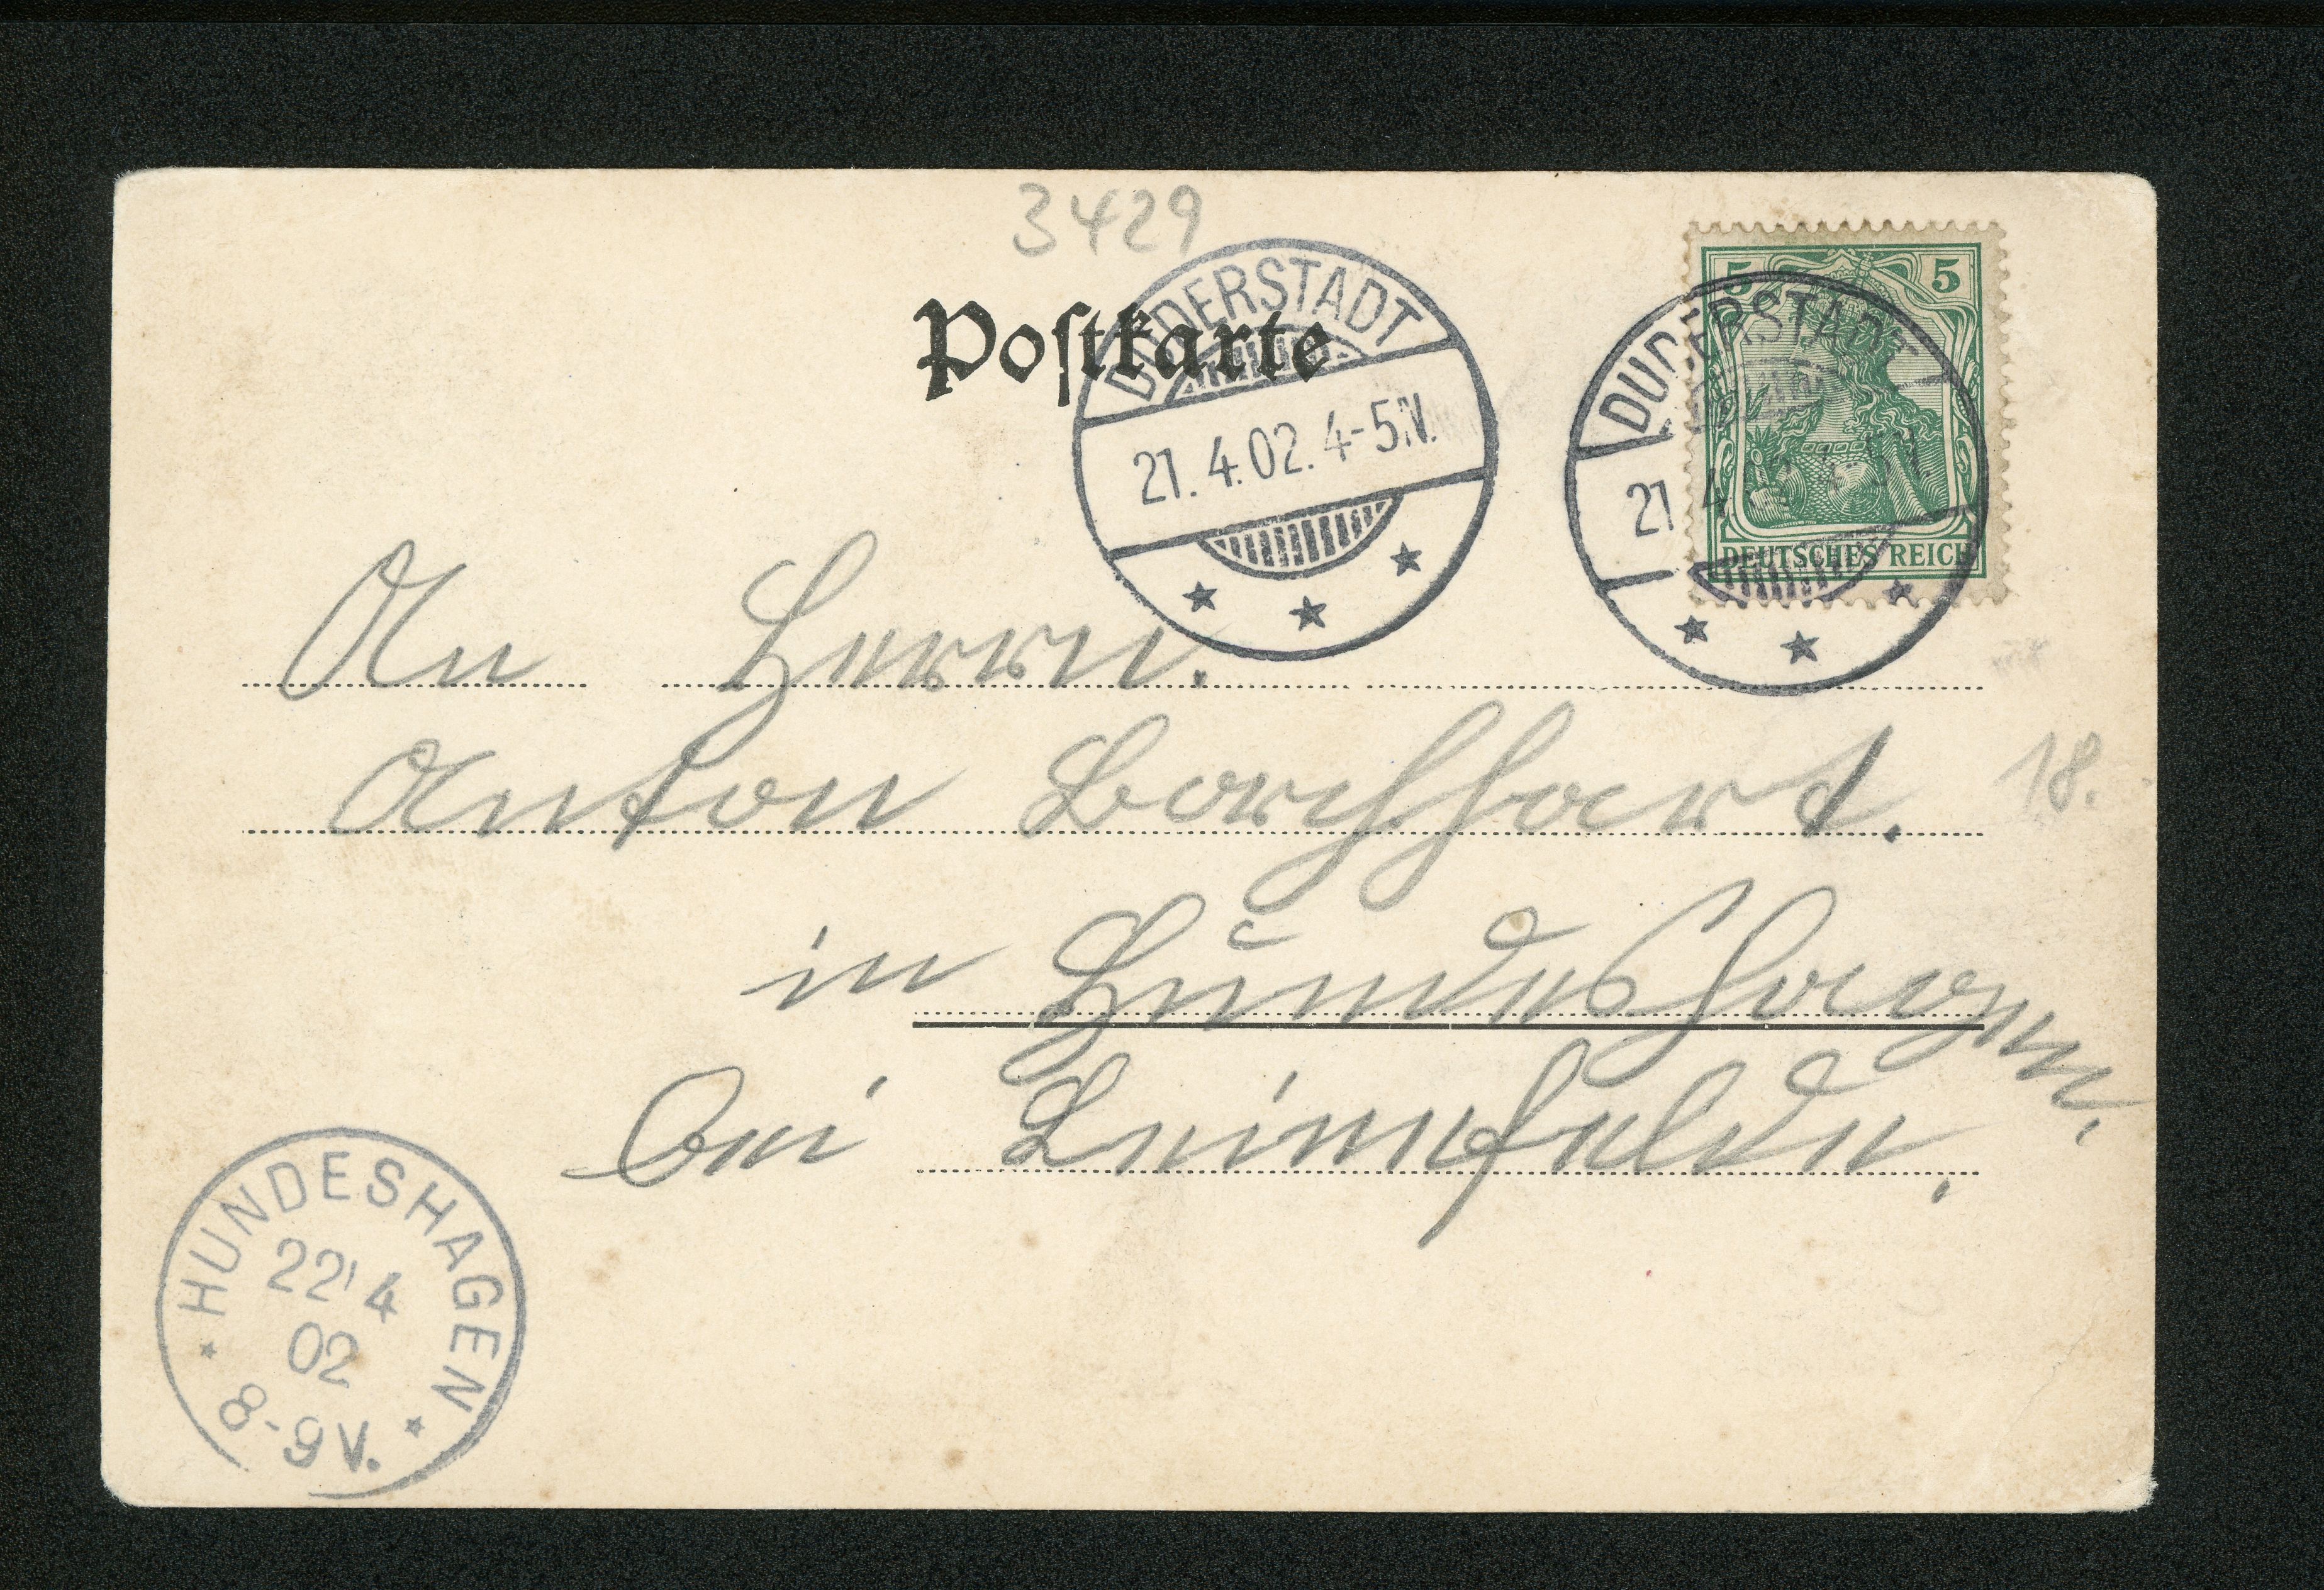 3429
Postkarte
DUDERSTADT
21.4.02.4-5N.
5 5
DUDERSTADT
21.4.02.4-5N.
DEUTSCHES REICH
An Herrn.
Anton Borchhart.
18.
in Hundeshagen.
bei Leinefelde.
HUNDESHAGEN
22 4
02
8-9V.